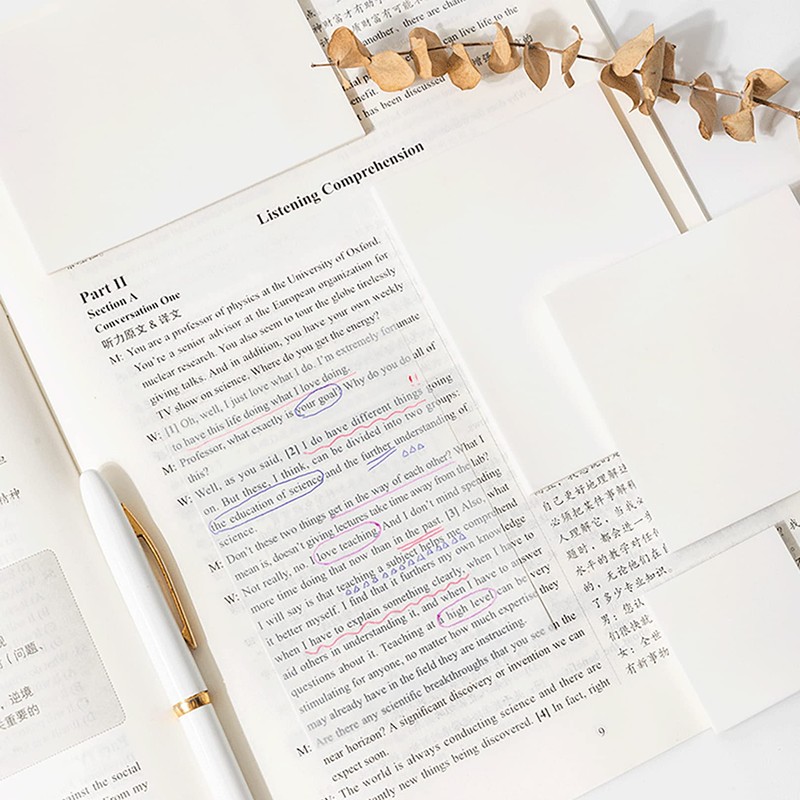 another, there are chan
can live life to the
enefit.
t has been discussed
Listening Comprehension
Part II
Section A
Conversation One
听力原文 & 译文
M: You are a professor of physics at the University of Oxford.
You're a senior advisor at the European organization for
nuclear research. You also seem to tour the globe tirelessly
giving talks. And in addition, you have your own weekly
TV show on science. Where do you get the energy?
W: [1] Oh, well, I just love what I do. I'm extremely fortunate
to have this life doing what I love doing.
M: Professor, what exactly is your goal? Why do you do all of
this?
W: Well, as you said, [2] I do have different things going
on. But these, I think, can be divided into two groups:
the education of science and the further understanding of
science.
M: Don't these two things get in the way of each other? What I
mean is, doesn't giving lectures take time away from the lab?
W: Not really, no. I love teaching and I don't mind spending
more time doing that now than in the past. [3] Also, what
I will say is that teaching a subject helps me comprehend
it better myself. I find that it furthers my own knowledge
when I have to explain something clearly, when I have to
aid others in understanding it, and when I have to answer
questions about it. Teaching at a high level can be very
stimulating for anyone, no matter how much expertise they
may already have in the field they are instructing.
M: Are there any scientific breakthroughs that you see on the
near horizon? A significant discovery or invention we can
expect soon.
W: The world is always conducting science and there are
antly new things being discovered. [4] In fact, right
9
自己更好地理解这
必须把某件事解释
人理解它，当我必
题时，都会进一步
水平的教学对任何
的，无论他们在
了多少专业知识
男：您认
们很快就
女：全世
有新事物
精神
观
（问题、
，逆境
重要的
ainst the social
from my